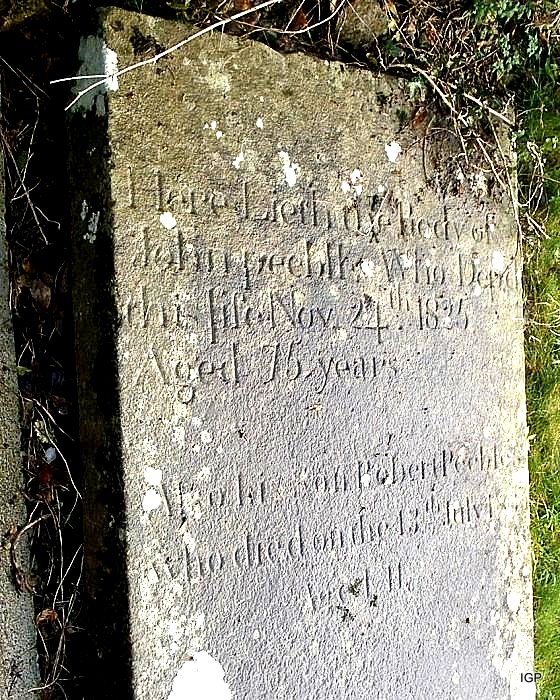 Here Lieth the Body of
John peebles Who Depd
this life Nov. 24th. 1835
Aged 75 years
Also his son Robert Peebles
who died on the 13th July
Aged
IGP